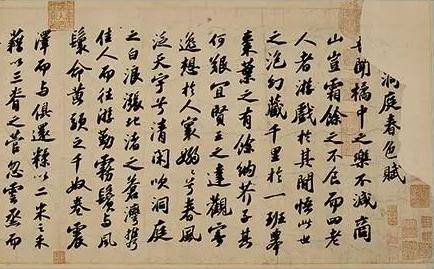 洞庭春色賦
聞橘中之樂不減商
山豈霜餘之不食而四老
人者游戲於其間悟此世
之泡幻藏千里於一班舉
棗葉之有餘納芥子其
何艱宜賢王之達觀寄
逸想於人寰嫋嫋兮春風
泛天宇兮清閑吹洞庭
之白浪漲北渚之蒼灣攜
佳人而往游勤霧鬢與風
鬟命黃頭之千奴卷震
澤而與俱還糅以二米之禾
藉以三脊之菅忽雲烝而